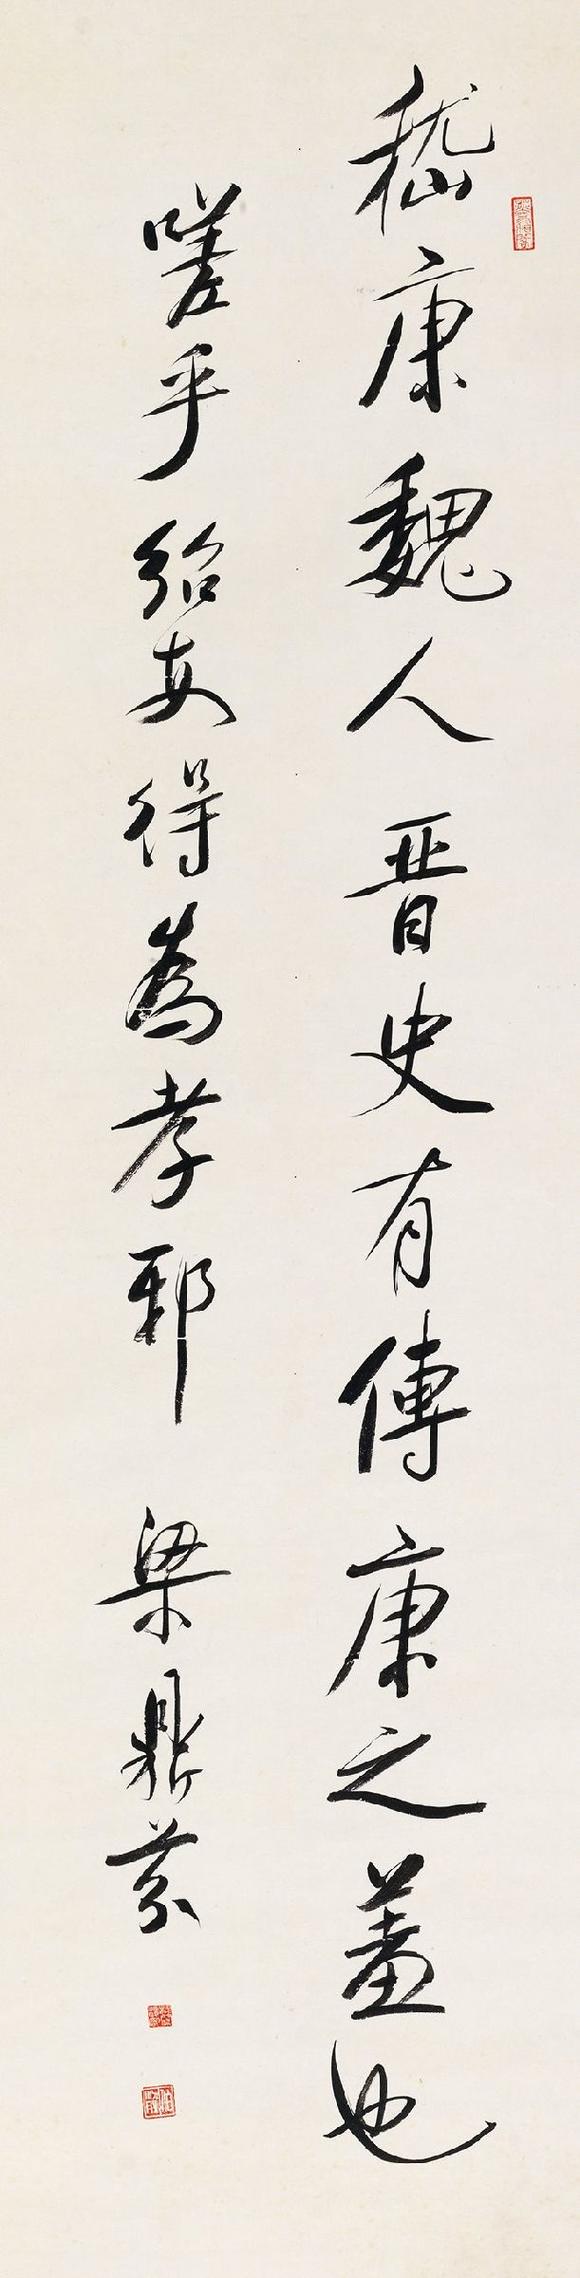 嵇康魏人晋史有傳康之羞也
嗟乎紹安得為孝耶
梁鼎芬